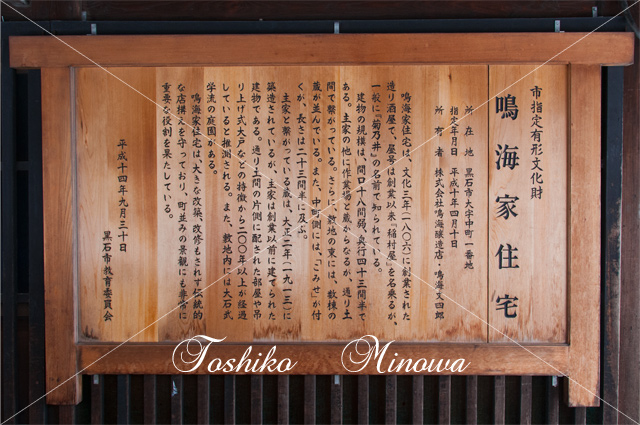 市指定有形文化財
鳴海家住宅
所在地 黒石市大字中町一番地
指定年月日 平成十年四月十日
所有者 株式会社鳴海醸造店・鳴海文四郎
鳴海家住宅は、文化三年(一八〇六)に創業された
造り酒屋で、屋号は創業以来「稲村屋」を名乗るが、
一般に「菊乃井」の名前で知られている。
建物の規模は、間口十八間弱、奥行四十三間半で
ある。主家の他に作業場と蔵からなるが、通り土
間で繋がっている。さらに、敷地の東には、数棟の
蔵が並んでいる。また、中町側には、「こみせ」が付
くが、長さは二十三間半に及ぶ。
主家と繋がっている蔵は、大正二年(一九一三)に
築造されているが、主家は創業以前に建てられた
建物である。通り土間の片側に配された部屋や吊
り上げ式大戸などの特徴から二〇〇年以上が経過
していると推測される。また、敷地内には大石武
学流の庭園がある。
鳴海家住宅は、大きな改築、改修もされず伝統的
な店構えを守っており、町並みの景観にも非常に
重要な役割を果たしている。
平成十四年九月三十日
黒石市教育委員会
Toshiko Minowa